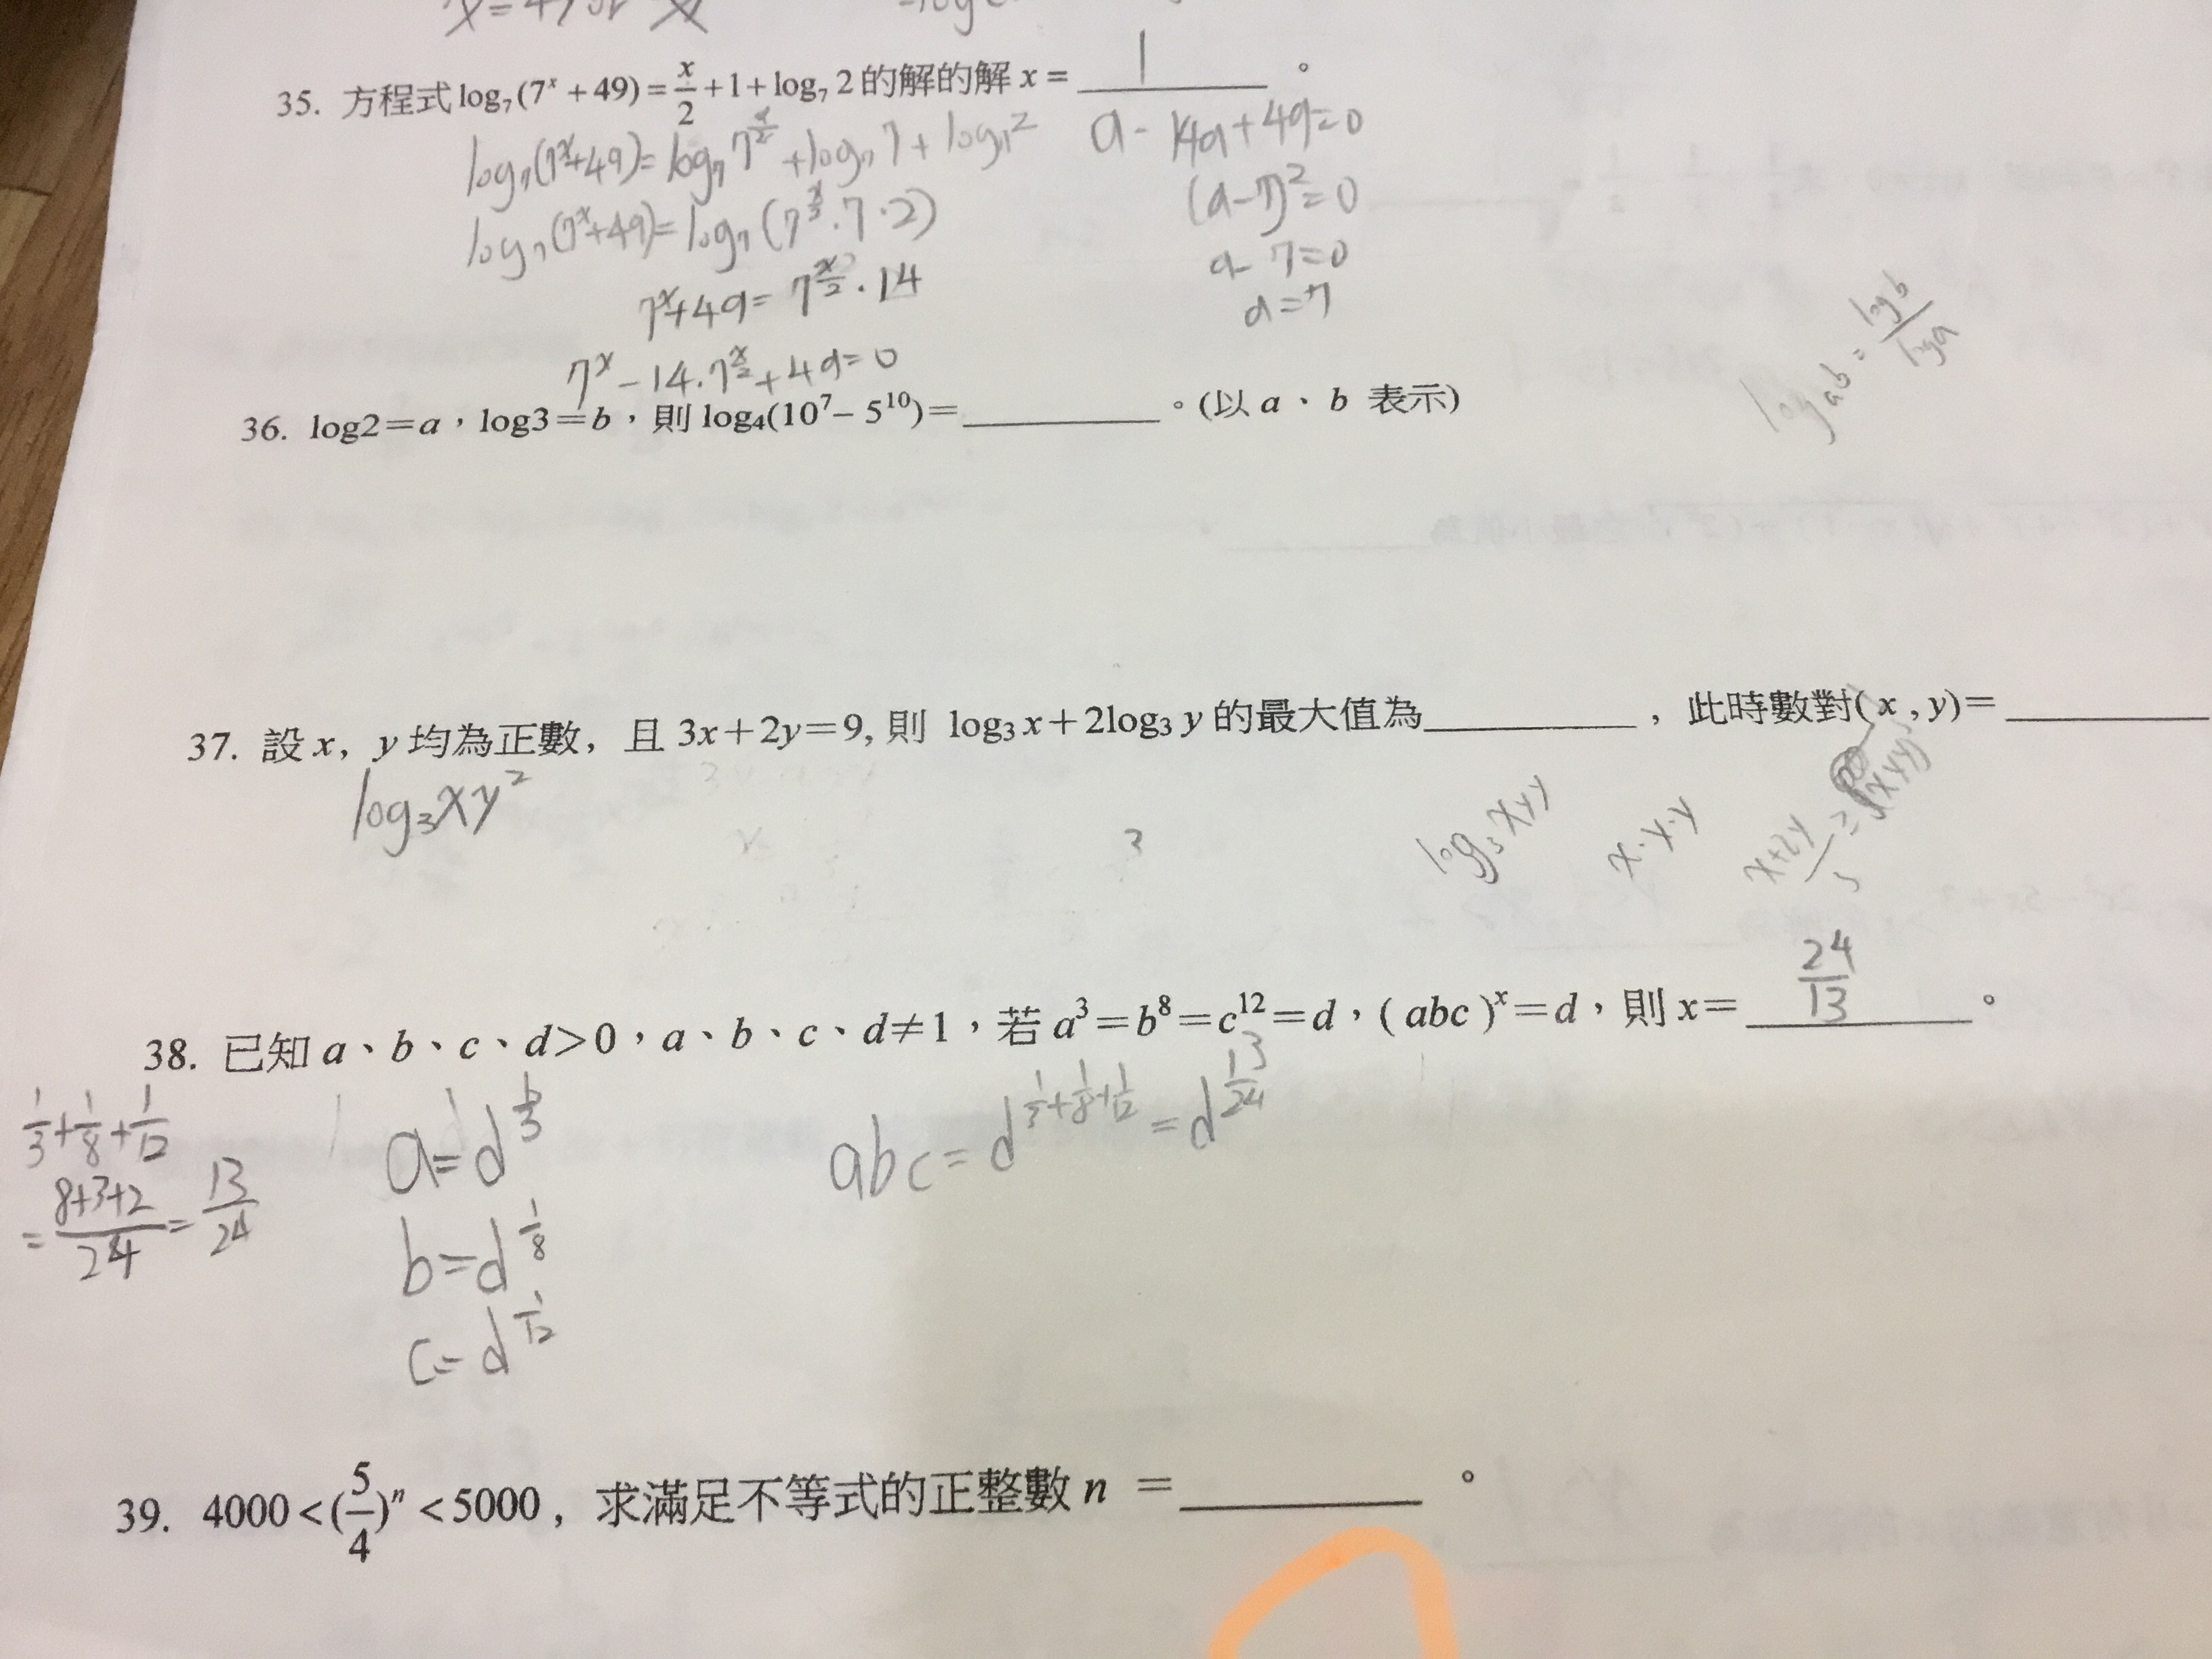 35. 方程式 log₇(7ˣ+49)=x/2+1+log₇ 2 的解的解 x = 1 。
log₇(7ˣ+49)=log₇7^(x/2)+log₇7+log₇2
log₇(7ˣ+49)=log₇(7^(x/2)·7·2)
7ˣ+49=7^(x/2)·14
7ˣ-14·7^(x/2)+49=0
a-14a+49=0
(a-7)²=0
a-7=0
a=7
36. log2=a,log3=b,則 log₄(10⁷– 5¹⁰)=________。(以 a、b 表示)
log ab = log b / log a
37. 設 x, y 均為正數, 且 3x+2y=9, 則 log₃ x+2log₃ y 的最大值為________, 此時數對( x , y)=________
log₃xy²
3
log₃xyy
x·y·y
38. 已知 a、b、c、d>0,a、b、c、d≠1,若 a³=b⁸=c¹²=d,( abc )ˣ=d,則 x= 24/13 。
1/3+1/8+1/12
=(8+3+2)/24=13/24
a=d^(1/3)
b=d^(1/8)
c=d^(1/12)
abc=d^(1/3+1/8+1/12)=d^(13/24)
39. 4000<(5/4)ⁿ<5000, 求滿足不等式的正整數 n =________。